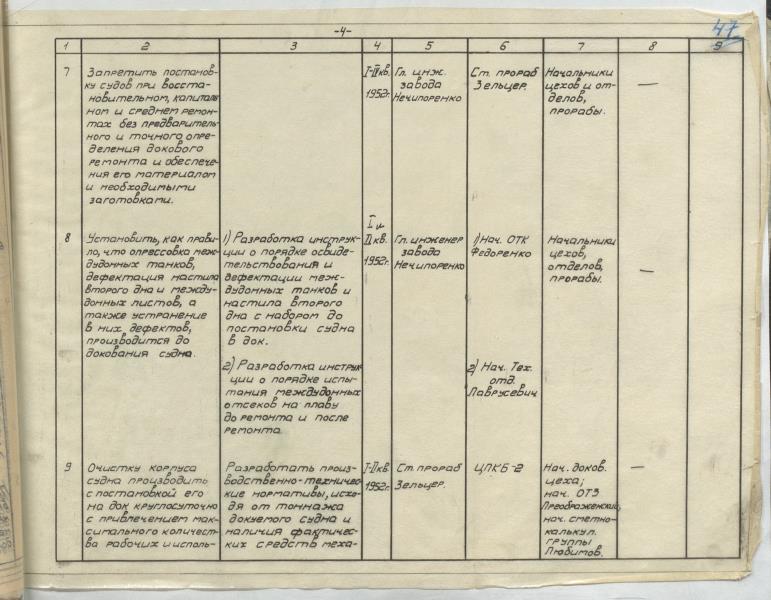 -4-
47.
1 2 3 4 5 6 7 8 9
7
Запретить постанов-
ку судов при восста-
новительном, капиталь-
ном и среднем ремон-
тах без предваритель-
ного и точного опре-
деления докового
ремонта и обеспече-
ния его материалом
и необходимыми
заготовками.
I-II кв.
1952г.
Гл. инж.
завода
Нечипоренко
Ст. прораб
Зельцер.
Начальники
цехов и от-
делов,
прорабы.
—
8
Установить, как прави-
ло, что опрессовка меж-
дудонных танков,
дефектация настила
второго дна и между-
донных листов, а
также устранение
в них дефектов,
производится до
докования судна.
1) Разработка инструк-
ции о порядке освиде-
тельствования и
дефектации меж-
дудонных танков и
настила второго
дна с набором до
постановки судна
в док.
2) Разработка инструк-
ции о порядке испы-
тания междудонных
отсеков на плаву
до ремонта и после
ремонта.
I и
II кв.
1952г.
Гл. инженер
завода
Нечипоренко
1) Нач. ОТК
Федоренко
2) Нач. Тех.
отд.
Лаврусевич
Начальники
цехов,
отделов,
прорабы.
—
9
Очистку корпуса
судна производить
с постановкой его
на док круглосуточно
с привлечением мак-
симального количест-
ва рабочих и исполь-
Разработать произ-
водственно-техничес-
кие нормативы, исхо-
дя от тоннажа
докуемого судна и
наличия фактичес-
ких средств меха-
I-II кв.
1952г.
Ст. прораб
Зельцер.
ЦПКБ-2
Нач. доков.
цеха;
нач. ОТЗ
Преображенский;
нач. сметно-
калькул.
группы
Любимов.
—